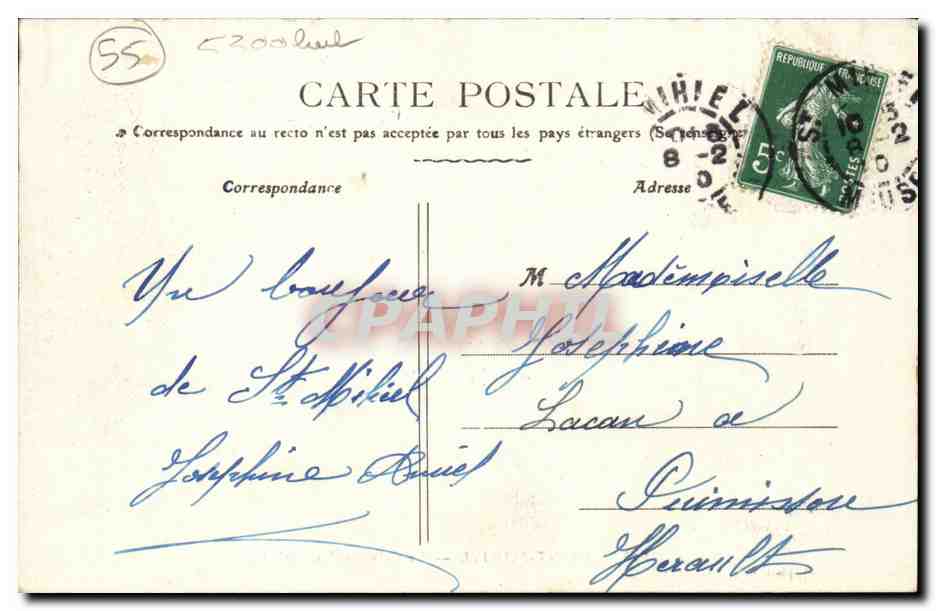 55
CARTE POSTALE
Correspondance au recto n'est pas acceptée par tous les pays étrangers (Se renseigne
Correspondance
Adresse
RÉPUBLIQUE FRANÇAISE
5c
POSTES
MIHIEL
8
Un bonjour
de St Mihiel
Josephine Amiel
M Mademoiselle
Josephine
Lacan a
Puimisson
Herault
CPAPHIL